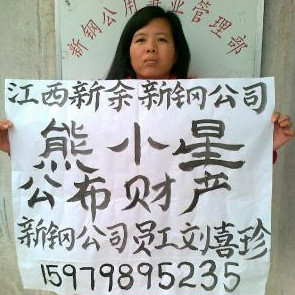 新钢公用事业管理部
江西新余新钢公司
熊小星
公布财产
新钢公司员工刘憙珍
15979895235